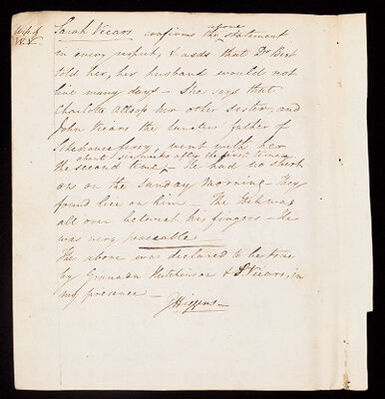 Wife of
W. V.
Sarah Vicars confirms the above statement
in every respect, & adds that Dr Best
told her, her husband would not
live many days – She says that
Charlotte Allsop her other sister, and
John Vicars the lunatics father of
ferry, went with her
about six weeks after the first time
the second time, – He had no shirt
on on the Sunday Morning – They
found lice on him – The Itch was
all over betwixt his fingers – He
was very peaceable
The above was declared to be true
by Hutchinson & S. Vicars, in
my presence –
G Higgins –